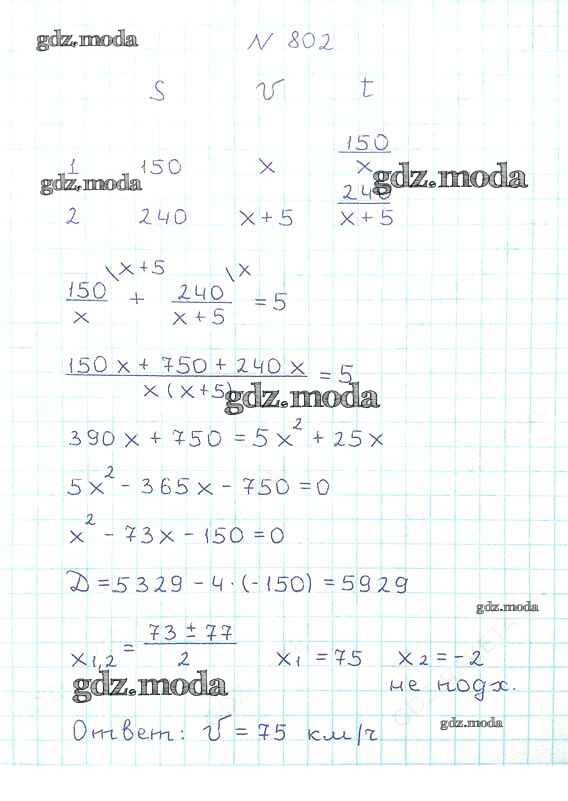 gdz.moda № 802
S v t
1 150 x 150/x
gdz.moda gdz.moda
2 240 x+5 240/(x+5)
150/x \x+5 + 240/(x+5) \x = 5
(150x + 750 + 240x)/(x(x+5)) = 5
gdz.moda
390x + 750 = 5x² + 25x
5x² - 365x - 750 = 0
x² - 73x - 150 = 0
D = 5329 - 4·(-150) = 5929
gdz.moda
x₁,₂ = (73 ± 77)/2 x₁ = 75 x₂ = -2
gdz.moda не подх.
Ответ: v = 75 км/ч
gdz.moda